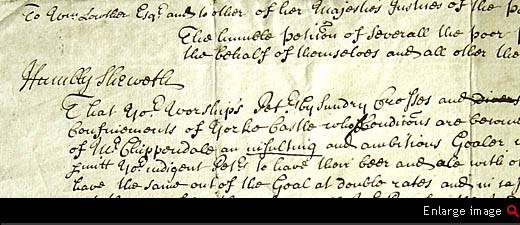 To Wm Lowther Esqr. and to other of her Majesties Justices of the p
The humble Petition of Severall the poor P
the behalf of themselves and all other the
Humbly Sheweth
That Yor. Worship's Petrs. by Sundry Crosses and divers
Confinements of Yorke Castle whose Conditions are become
of Mr. Chippendale an insulting and ambitious Goaler
Yor. indigent Petrs. to have their beer and ale with o
have the same out of the Goal at double rates and in
Enlarge image